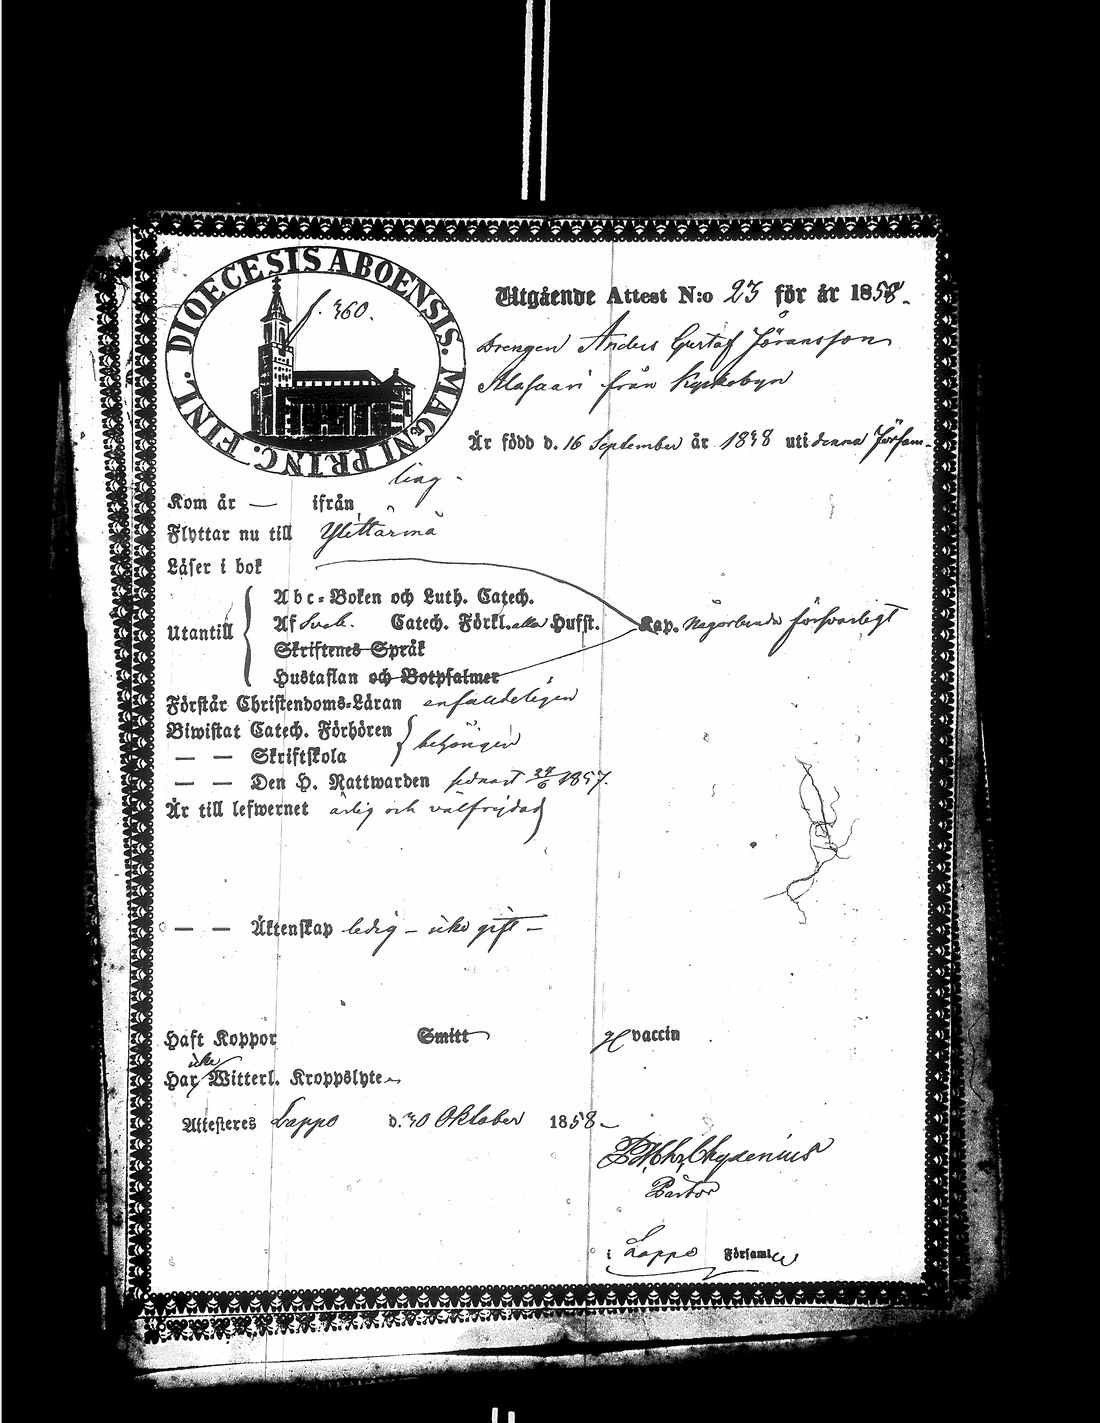 DIOECESIS ABOENSIS. MAGNI PRINC. FINL.
f. 360.
Utgående Attest N:o 23 för år 1858.
Drengen Anders Gustaf Jöransson
från Kyrkobyn
Är född d. 16 September år 1838 uti denna Församling.
Kom år — ifrån
Flyttar nu till Ylittärmä
Läser i bok
Utantill
Abc-Boken och Luth. Catech.
Af Sveb. Catech. Förkl. Hufst. Kap. någorlunda försvarligt
Skriftenes Språk
Hustaflan och Botpsalmer
Förstår Christendoms-Läran enfaldeligen
Biwistat Catech. Förhören
— — Skriftskola behörigen
— — Den H. Nattwarden senast 24/6 1857.
Är till lefwernet ärlig och välfrejdad
— — Äktenskap ledig – icke gift –
Haft Koppor Smitt vaccin
Har icke Witterl. Kroppslyte
Attesteres Lappo d. 30 Oktober 1858.
Pastor
i Lappo Församl.